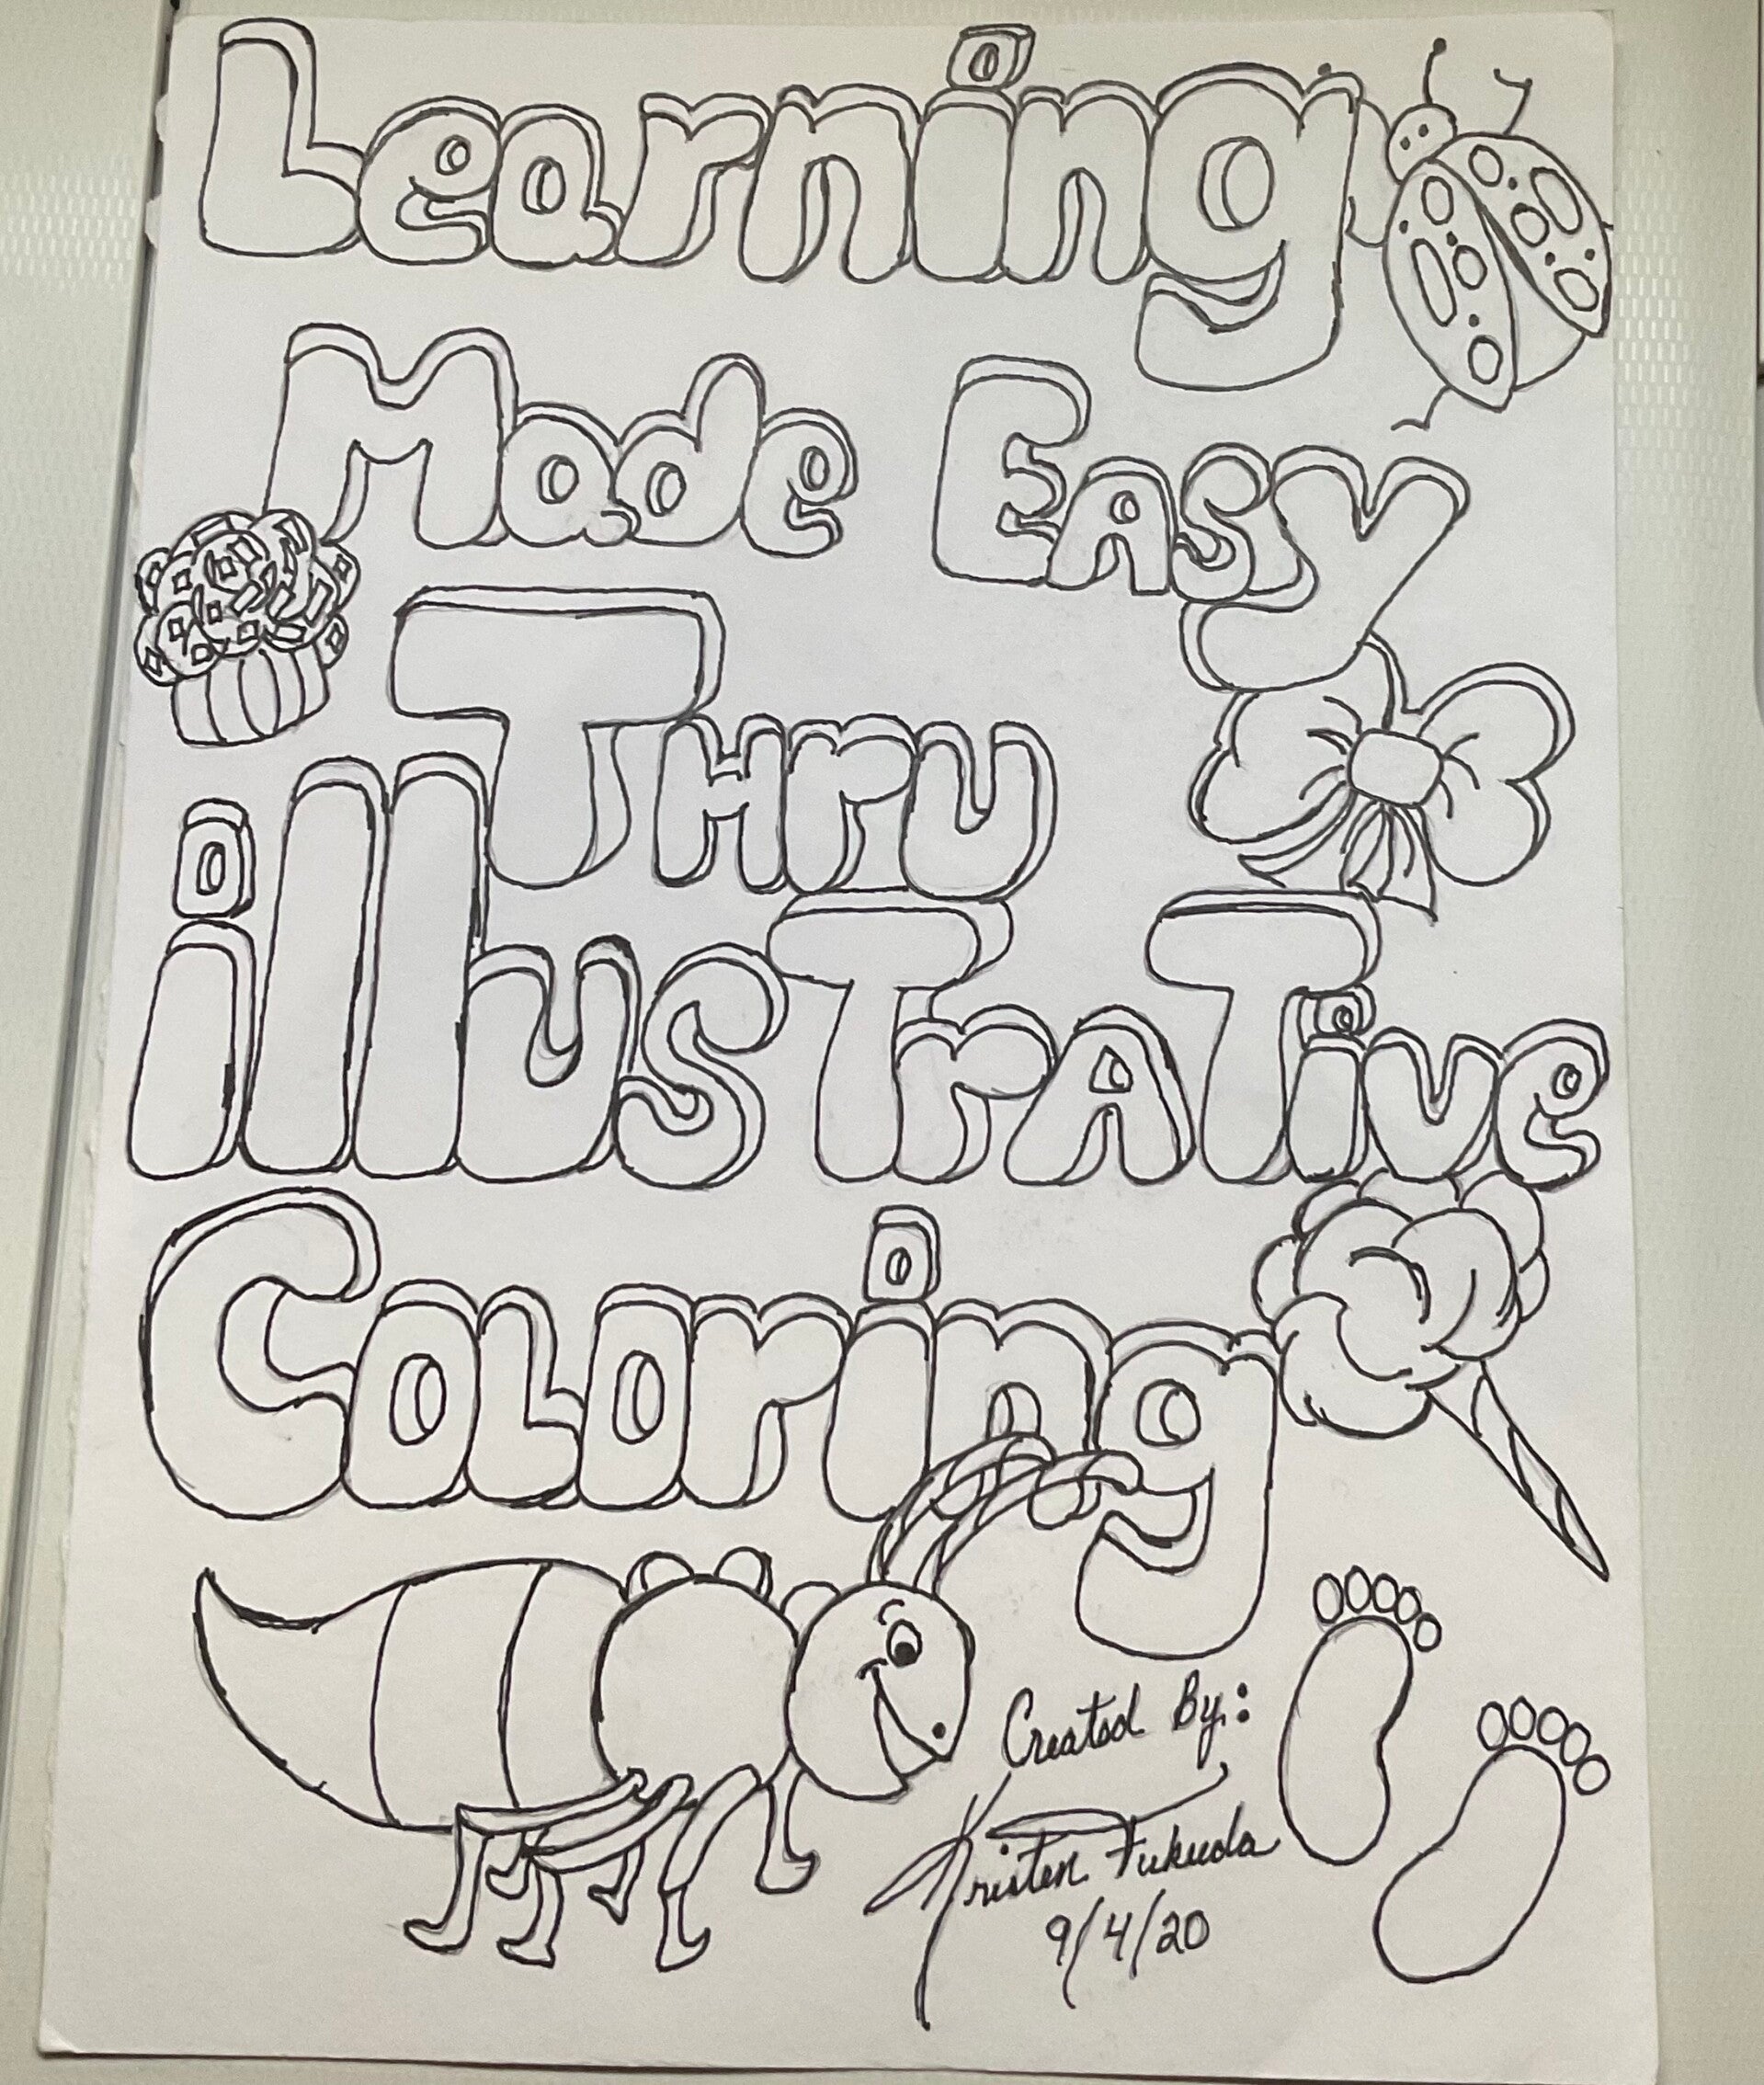 Learning
Made EAsy
THru
illusTrATive
Coloring
Created By:
Kristen Fukuda
9/4/20